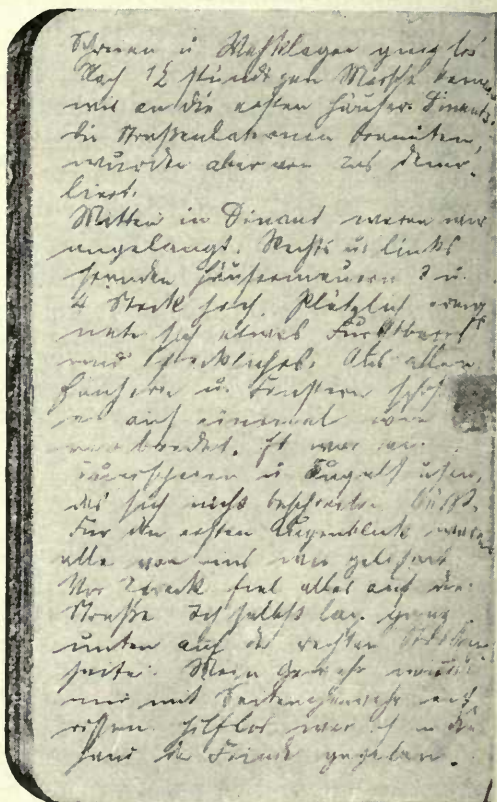 Schreien u Wehklagen ging los
Nach 1½ stündigem Marsche kamen
wir an die ersten Häuser Dinants.
die Straßenlaternen brannten,
wurden aber von uns demo-
liert.
Mitten in Dinant waren wir
angelangt. Rechts u. links
Häusermauern 3 u.
4 Stock hoch. Plötzlich ereig
nete sich etwas Furchtbares
und Schreckliches. Aus allen
Häusern u. Fenstern
auf einmal
Es war ein
u
das sich nicht beschreiben läßt.
Für den ersten Augenblick waren
alle von uns wie gelähmt
Vor Schreck fiel alles auf die
Straße Ich selbst lag ganz
unten auf der rechten
seite. Mein Gewehr wurde
mir mit Seitengewehr ent
rissen hilflos war ich in die
Hand der Feinde gegeben.